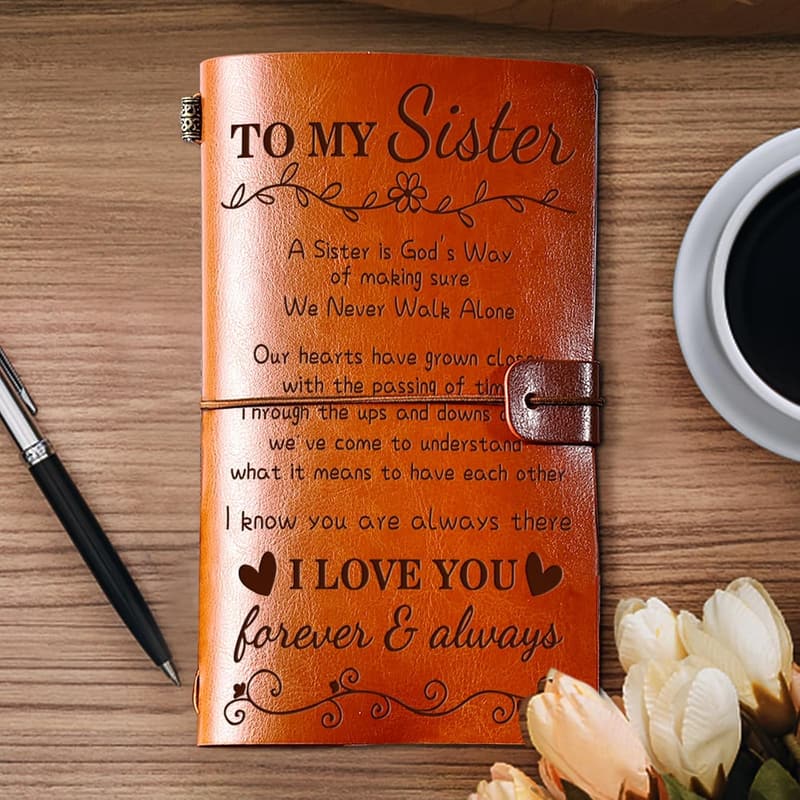 TO MY Sister
A Sister is God's Way
of making sure
We Never Walk Alone
Our hearts have grown closer
with the passing of time
Through the ups and downs
we've come to understand
what it means to have each other
I know you are always there
I LOVE YOU
forever & always